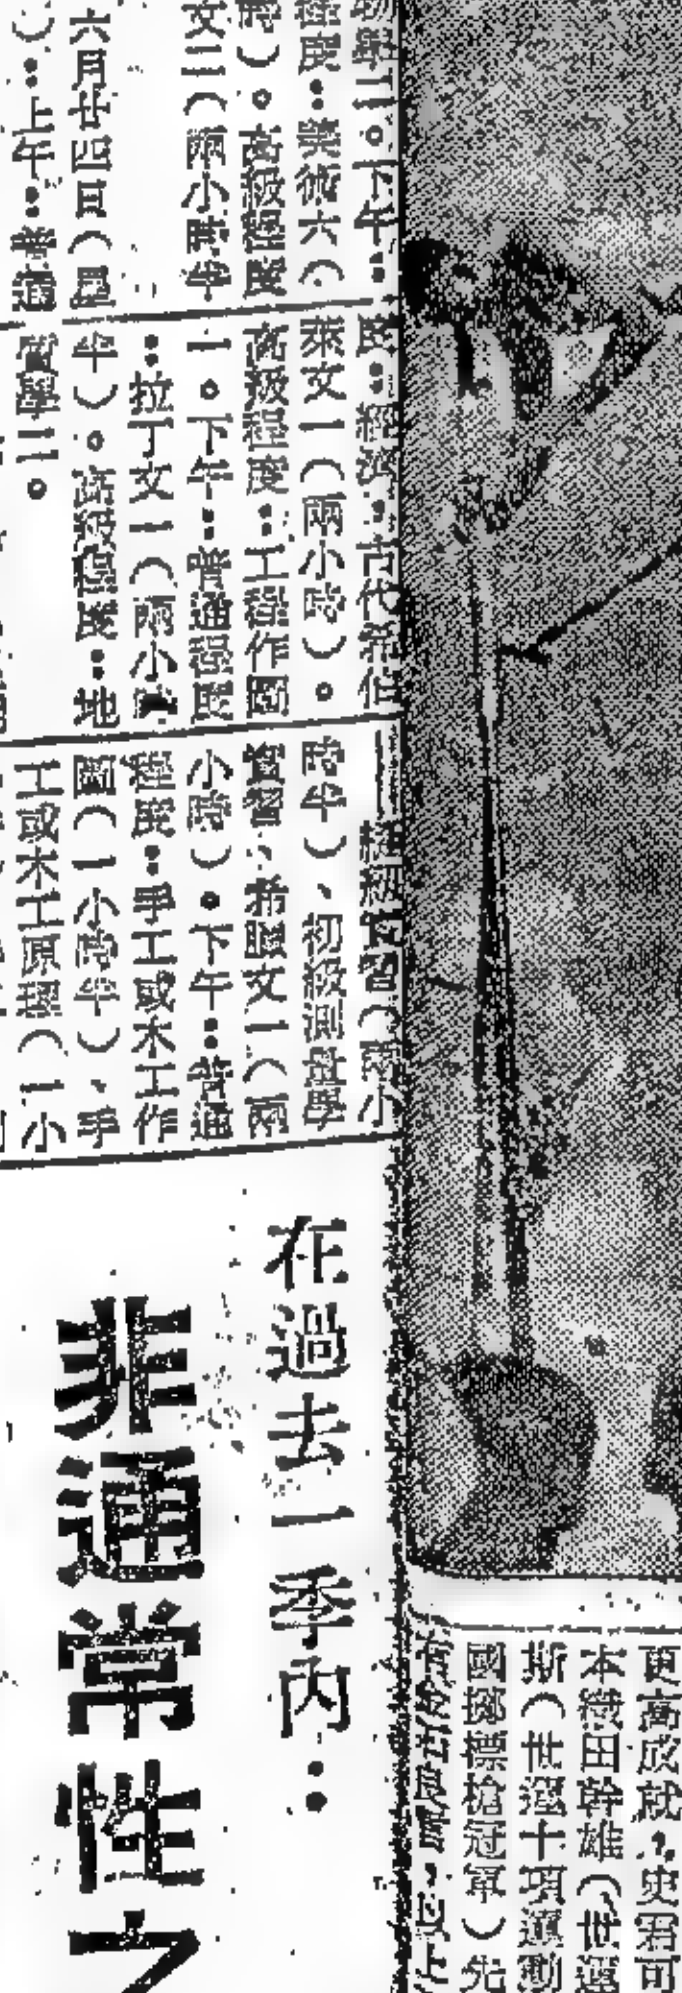 下午：
程度：美術六（
時）。高級程度
文二（兩小時半
六月廿四日（星
）：上午：普通
經濟：古代希伯
萊文一（兩小時）。
高級程度：工程作圖
一。下午：普通程度
：拉丁文一（兩小時
半）。高級程度：地
質學二。
（兩小
時半）、初級測量學
實習、希臘文一（兩
小時）。下午：普通
程度：手工或木工作
圖（一小時半）、手
工或木工原理（一小
在過去一季內：
非通常性之
更高成就，史君可
本織田幹雄（世運
斯（世運十項運動
國擲標槍冠軍）先
以上